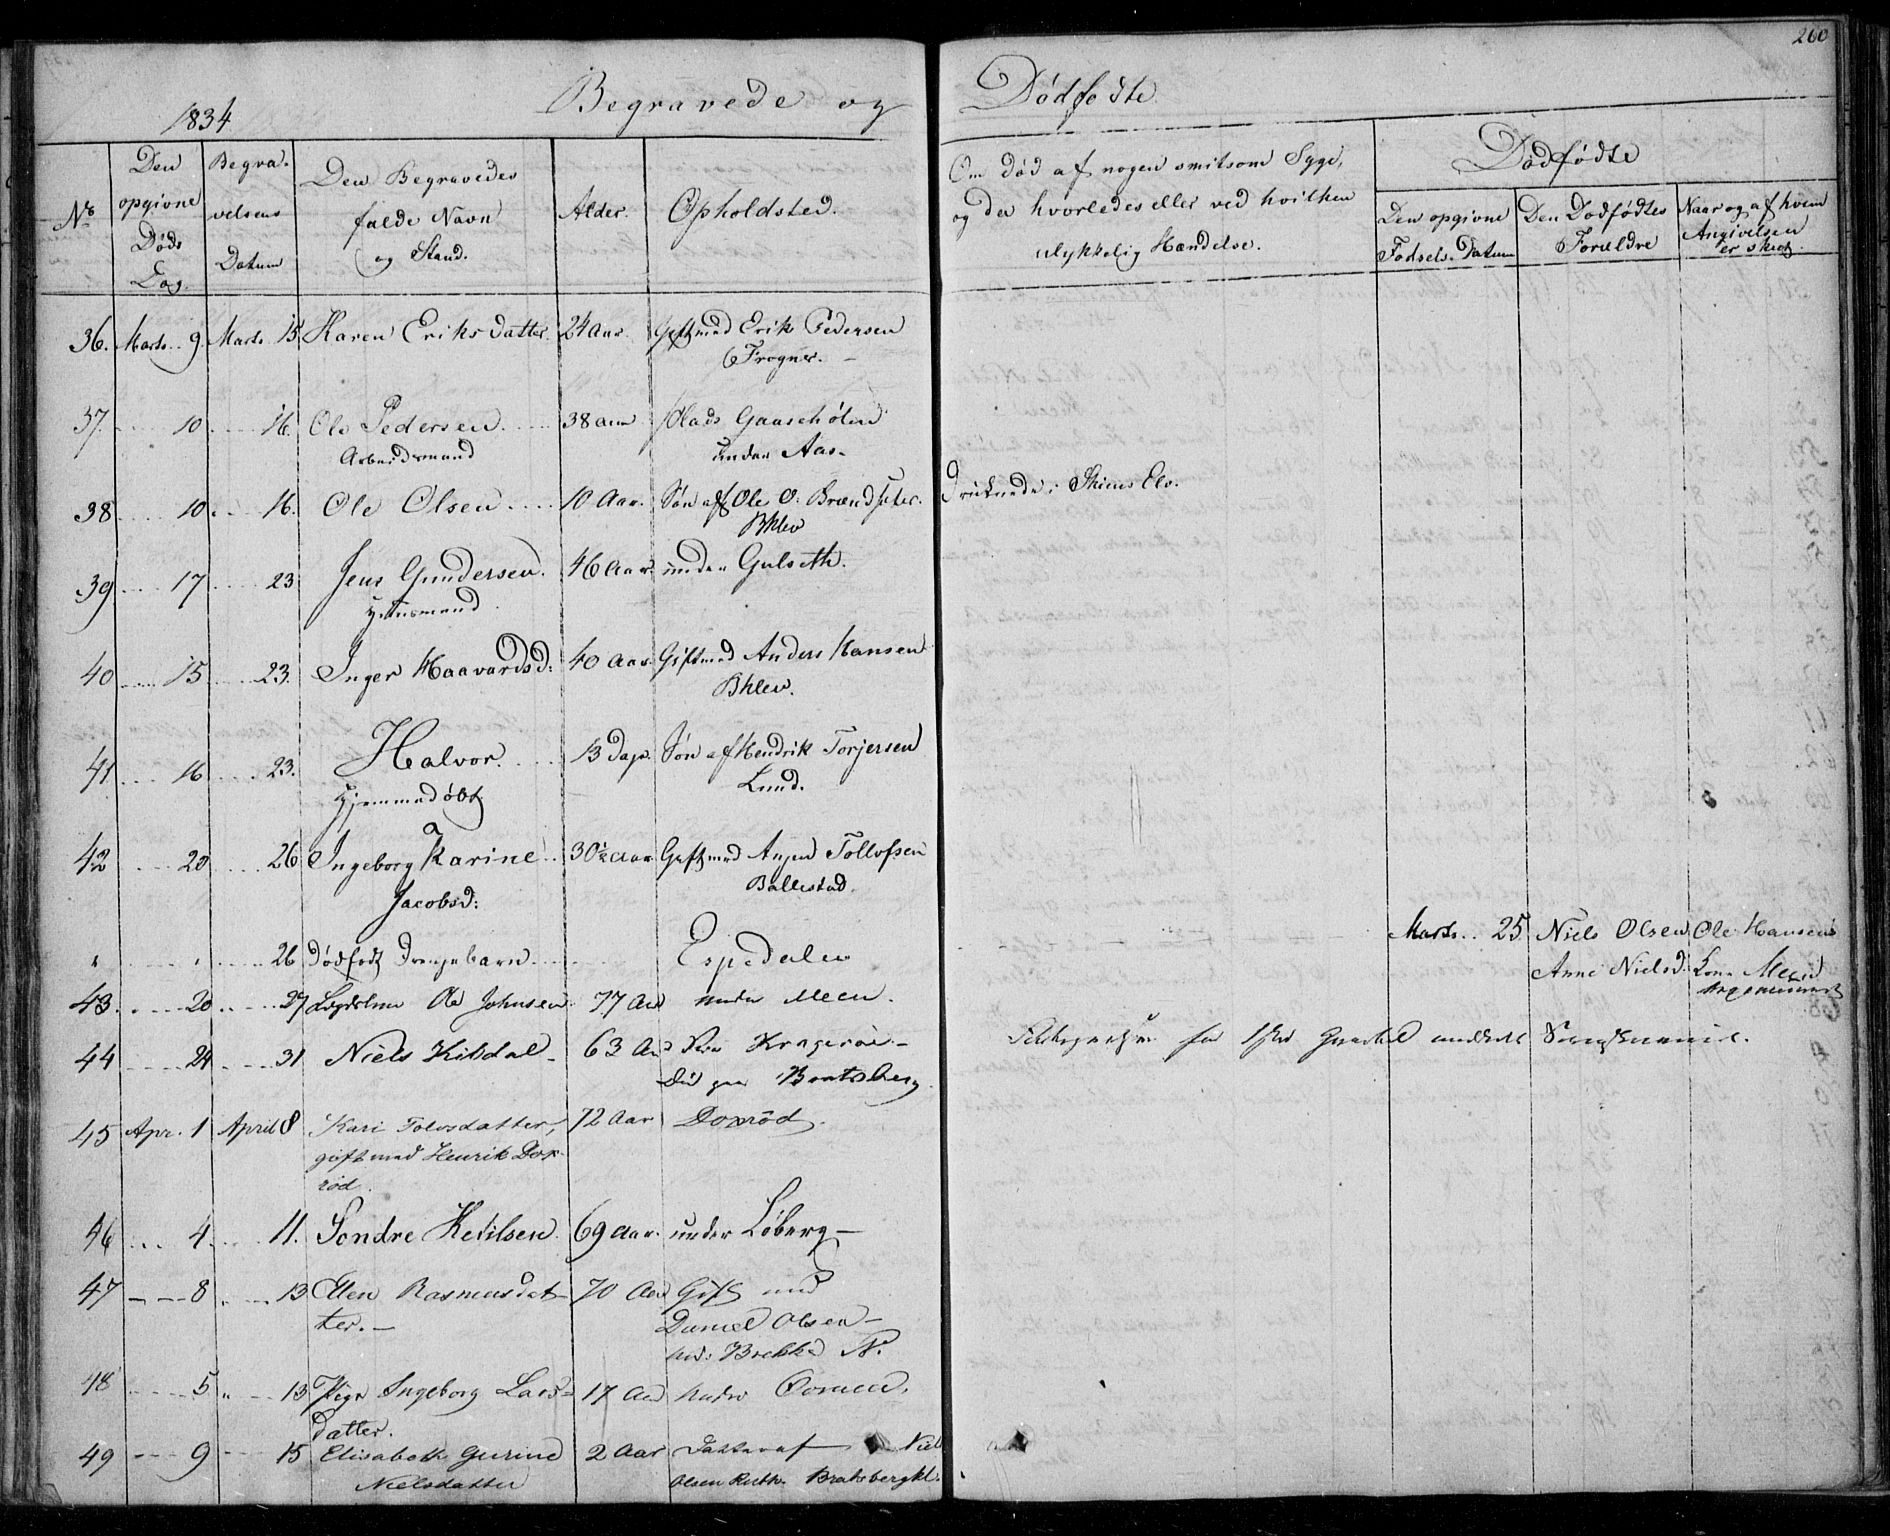 260
1834
Begravede og Dødfødte
No
Den opgivne Døds Dag.
Begravelsens Datum
Den Begravedes fulde Navn og Stand.
Alder.
Opholdsted.
Om død af nogen smitsom Syge, og da hvorledes eller ved hvilken ulykkelig Hændelse.
Dødfødte
Den opgivne Fødsels Datum
Den Dødfødtes Forældre
Naar og af hvem Angivelsen er skeet.
36. Marts 9. Marts 15 Karen Eriksdatter. 24 Aar. Gift med Erik Pedersen
Frogner.
37. 10 16. Ole Pedersen 38 Aar Plads Gaasehølen
Arbeidsmand under Aas.
38 10. 16. Ole Olsen 10 Aar. Søn af Ole O. Brændsæter. Druknede i Skiens Elv.
Bhlev
39 17 23 Jens Gundersen. 46 Aar. under Gulseth.
Huusmand
40 15 23. Inger Haavardsd: 40 Aar. Gift med Anders Hansen
Bhlev.
41 16 23. Halvor. 13 Dage. Søn af Hendrik Torjersen
Hjemmedøbt Lund.
42 20 26 Ingeborg Karine 30½ Aar Gift med Tollofsen
Jacobsd: Ballestad.
26 Dødfødt Drengebarn Espedalen Marts 25 Niels Olsen Ole Hansens
Anne Nielsd. Kone Meen
43 20 27 Ole Johnsen 77 Aar under Meen.
44 24 31 Niels Kildal 63 Aar Kragerøe
Død paa Bratsberg
45 Apr. 1 April 8 Kari Tolvsdatter, 72 Aar Doxrød.
gift med Henrik Dox-
rød.
46 4. 11. Sondre Ketilsen 69 Aar. under Løberg
47 8 13 Ellen Rasmusdat- 70 Aar Gift med
ter. Daniel Olsen
Brekke N.
48 5 13 Pige Ingeborg Lars- 17 Aar under
datter.
49 9 15 Elisabeth Gurine 2 Aar Datter af Niels
Nielsdatter Olsen Bratsbergkl.